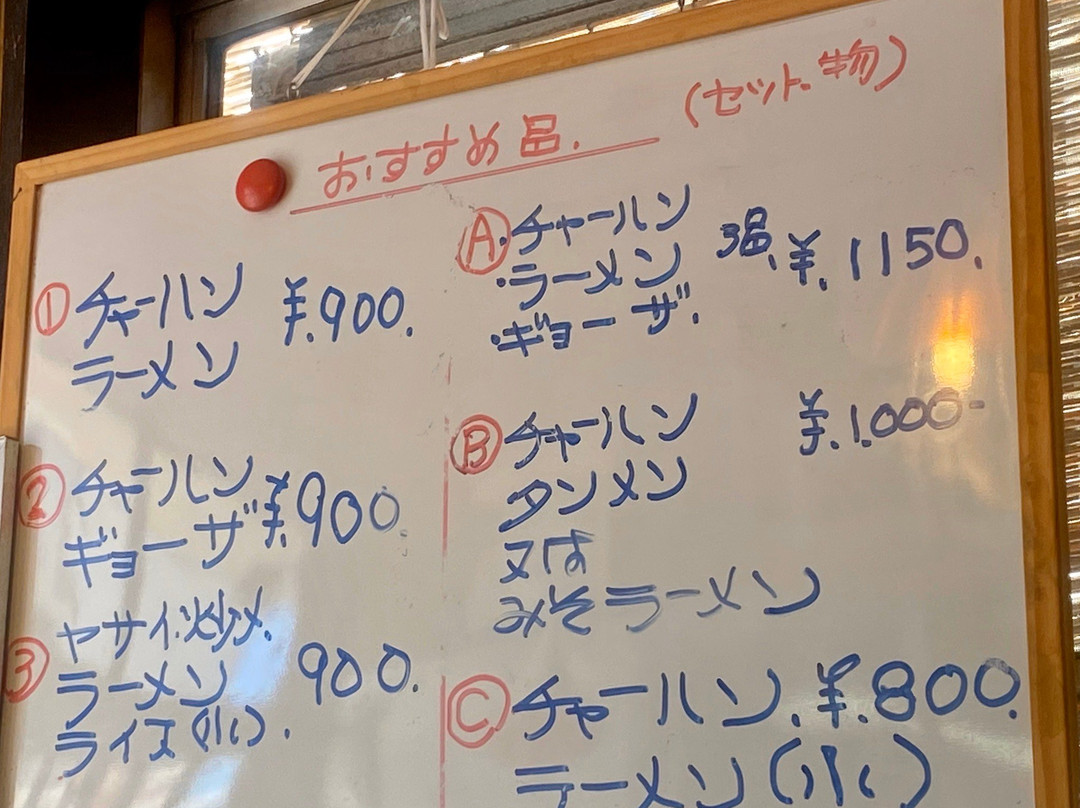 おすすめ品.
(セット物)
① チャーハン ¥.900.
ラーメン
② チャーハン ¥.900
ギョーザ
③ ヤサイ炒メ.
ラーメン 900.
ライス(小).
Ⓐ ・チャーハン
・ラーメン 3品, ¥.1150.
・ギョーザ.
Ⓑ チャーハン ¥.1.000-
タンメン
又は
みそラーメン
Ⓒ チャーハン. ¥.800.
ラーメン(小)